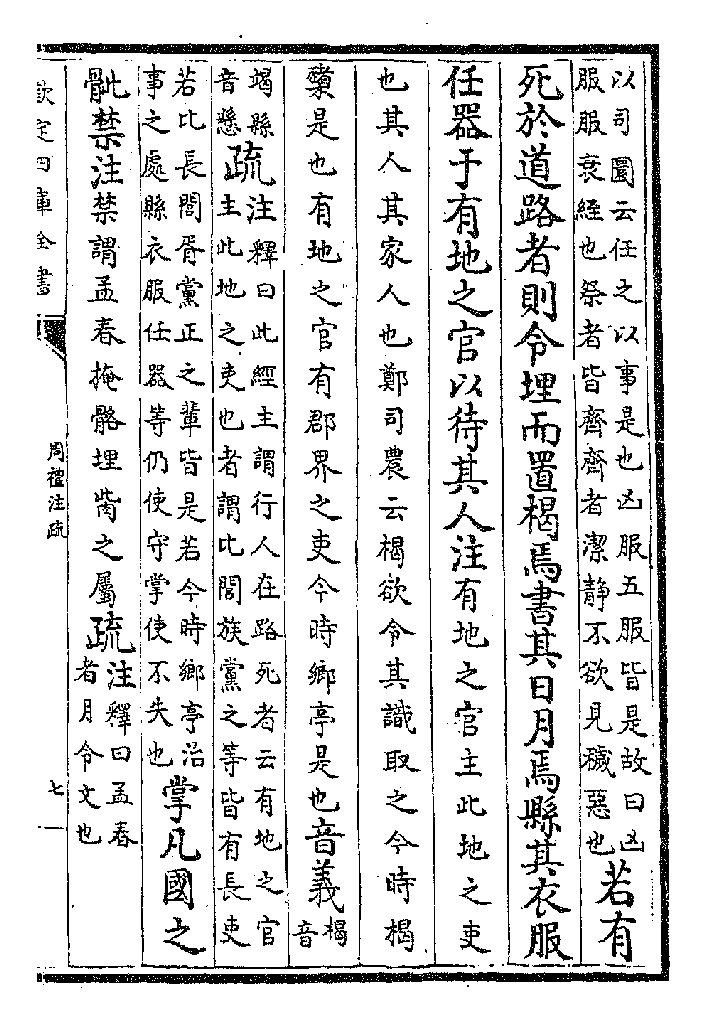 以司圜云任之以事是也凶服五服皆是故曰凶
服服衰絰也祭者皆齊齊者潔静不欲見穢惡也
若有
死於道路者則令埋而置楬焉書其日月焉縣其衣服
任器于有地之官以待其人注有地之官主此地之吏
也其人其家人也鄭司農云楬欲令其識取之今時楬
櫫是也有地之官有郡界之吏今時鄉亭是也音義楬音
竭縣
音懸
疏注釋曰此經主謂行人在路死者云有地之官
主此地之吏也者謂比閭族黨之等皆有長吏
若比長閭胥黨正之輩皆是若今時鄉亭治
事之處縣衣服任器等仍使守掌使不失也
掌凡國之
骴禁注禁謂孟春掩骼埋胔之屬疏注釋曰孟春
者月令文也
欽定四庫全書
周禮注疏
七